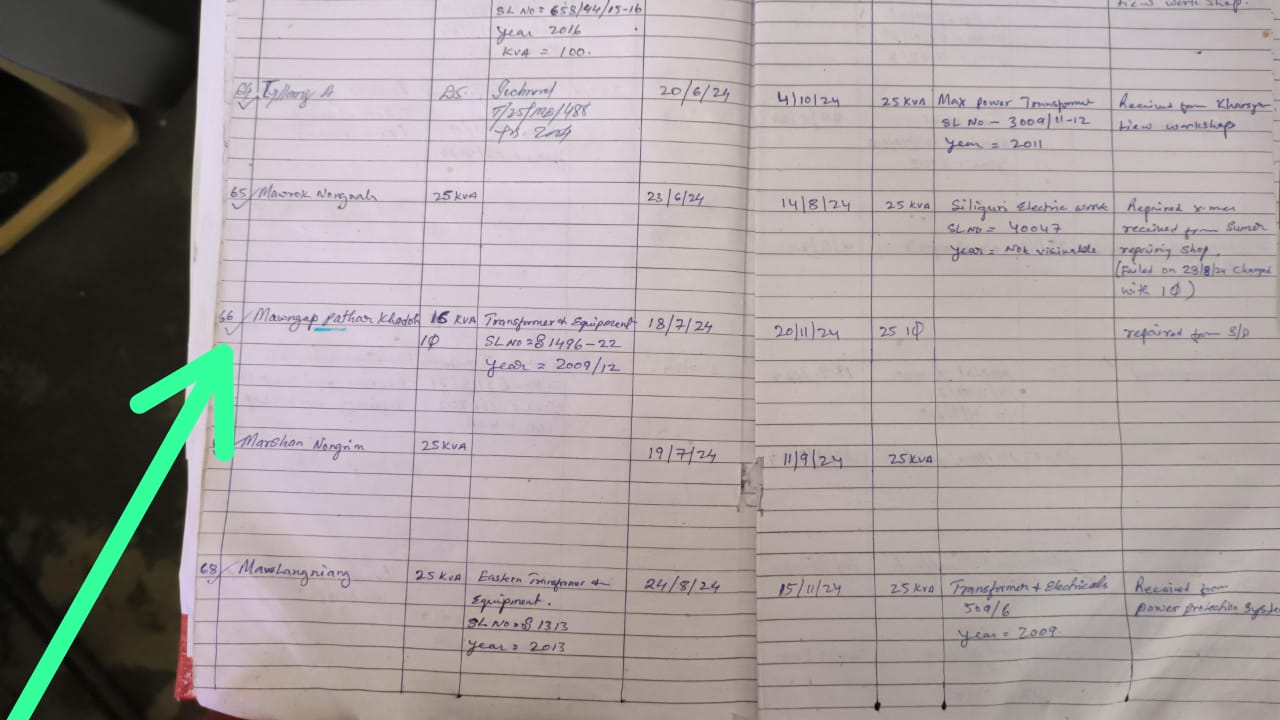 SL No = 658/44/15-16
Year 2016
KVA = 100.
view work shop.
64 A 25 20/6/24 4/10/24 25 KVA Max power Transformer Received from
T/25/ME/488 SL No - 3009/11-12 view workshop
2024 Year = 2011
65 Mawrok Nongrah 25 KVA 23/6/24 14/8/24 25 KVA Siliguri Electric work Repaired x-mer
SL No = 40047 received from Sumer
Year = Not visivable repairing shop.
(Failed on 28/8/24 Changed
with 1Φ)
66 Mawngap pathar Khadoh 16 KVA Transformer & Equipment 18/7/24 20/11/24 25 1Φ repaired from S/D
1Φ SL No = 81496-22
Year = 2009/12
Marshan Nongrim 25 KVA 19/7/24 11/9/24 25 KVA
68 Mawlangniang 25 KVA Eastern Transformer & 24/8/24 15/11/24 25 KVA Transformer & Electricals Received from
Equipment. 509/6 power protection
SL No = 81313 Year = 2009
Year = 2013